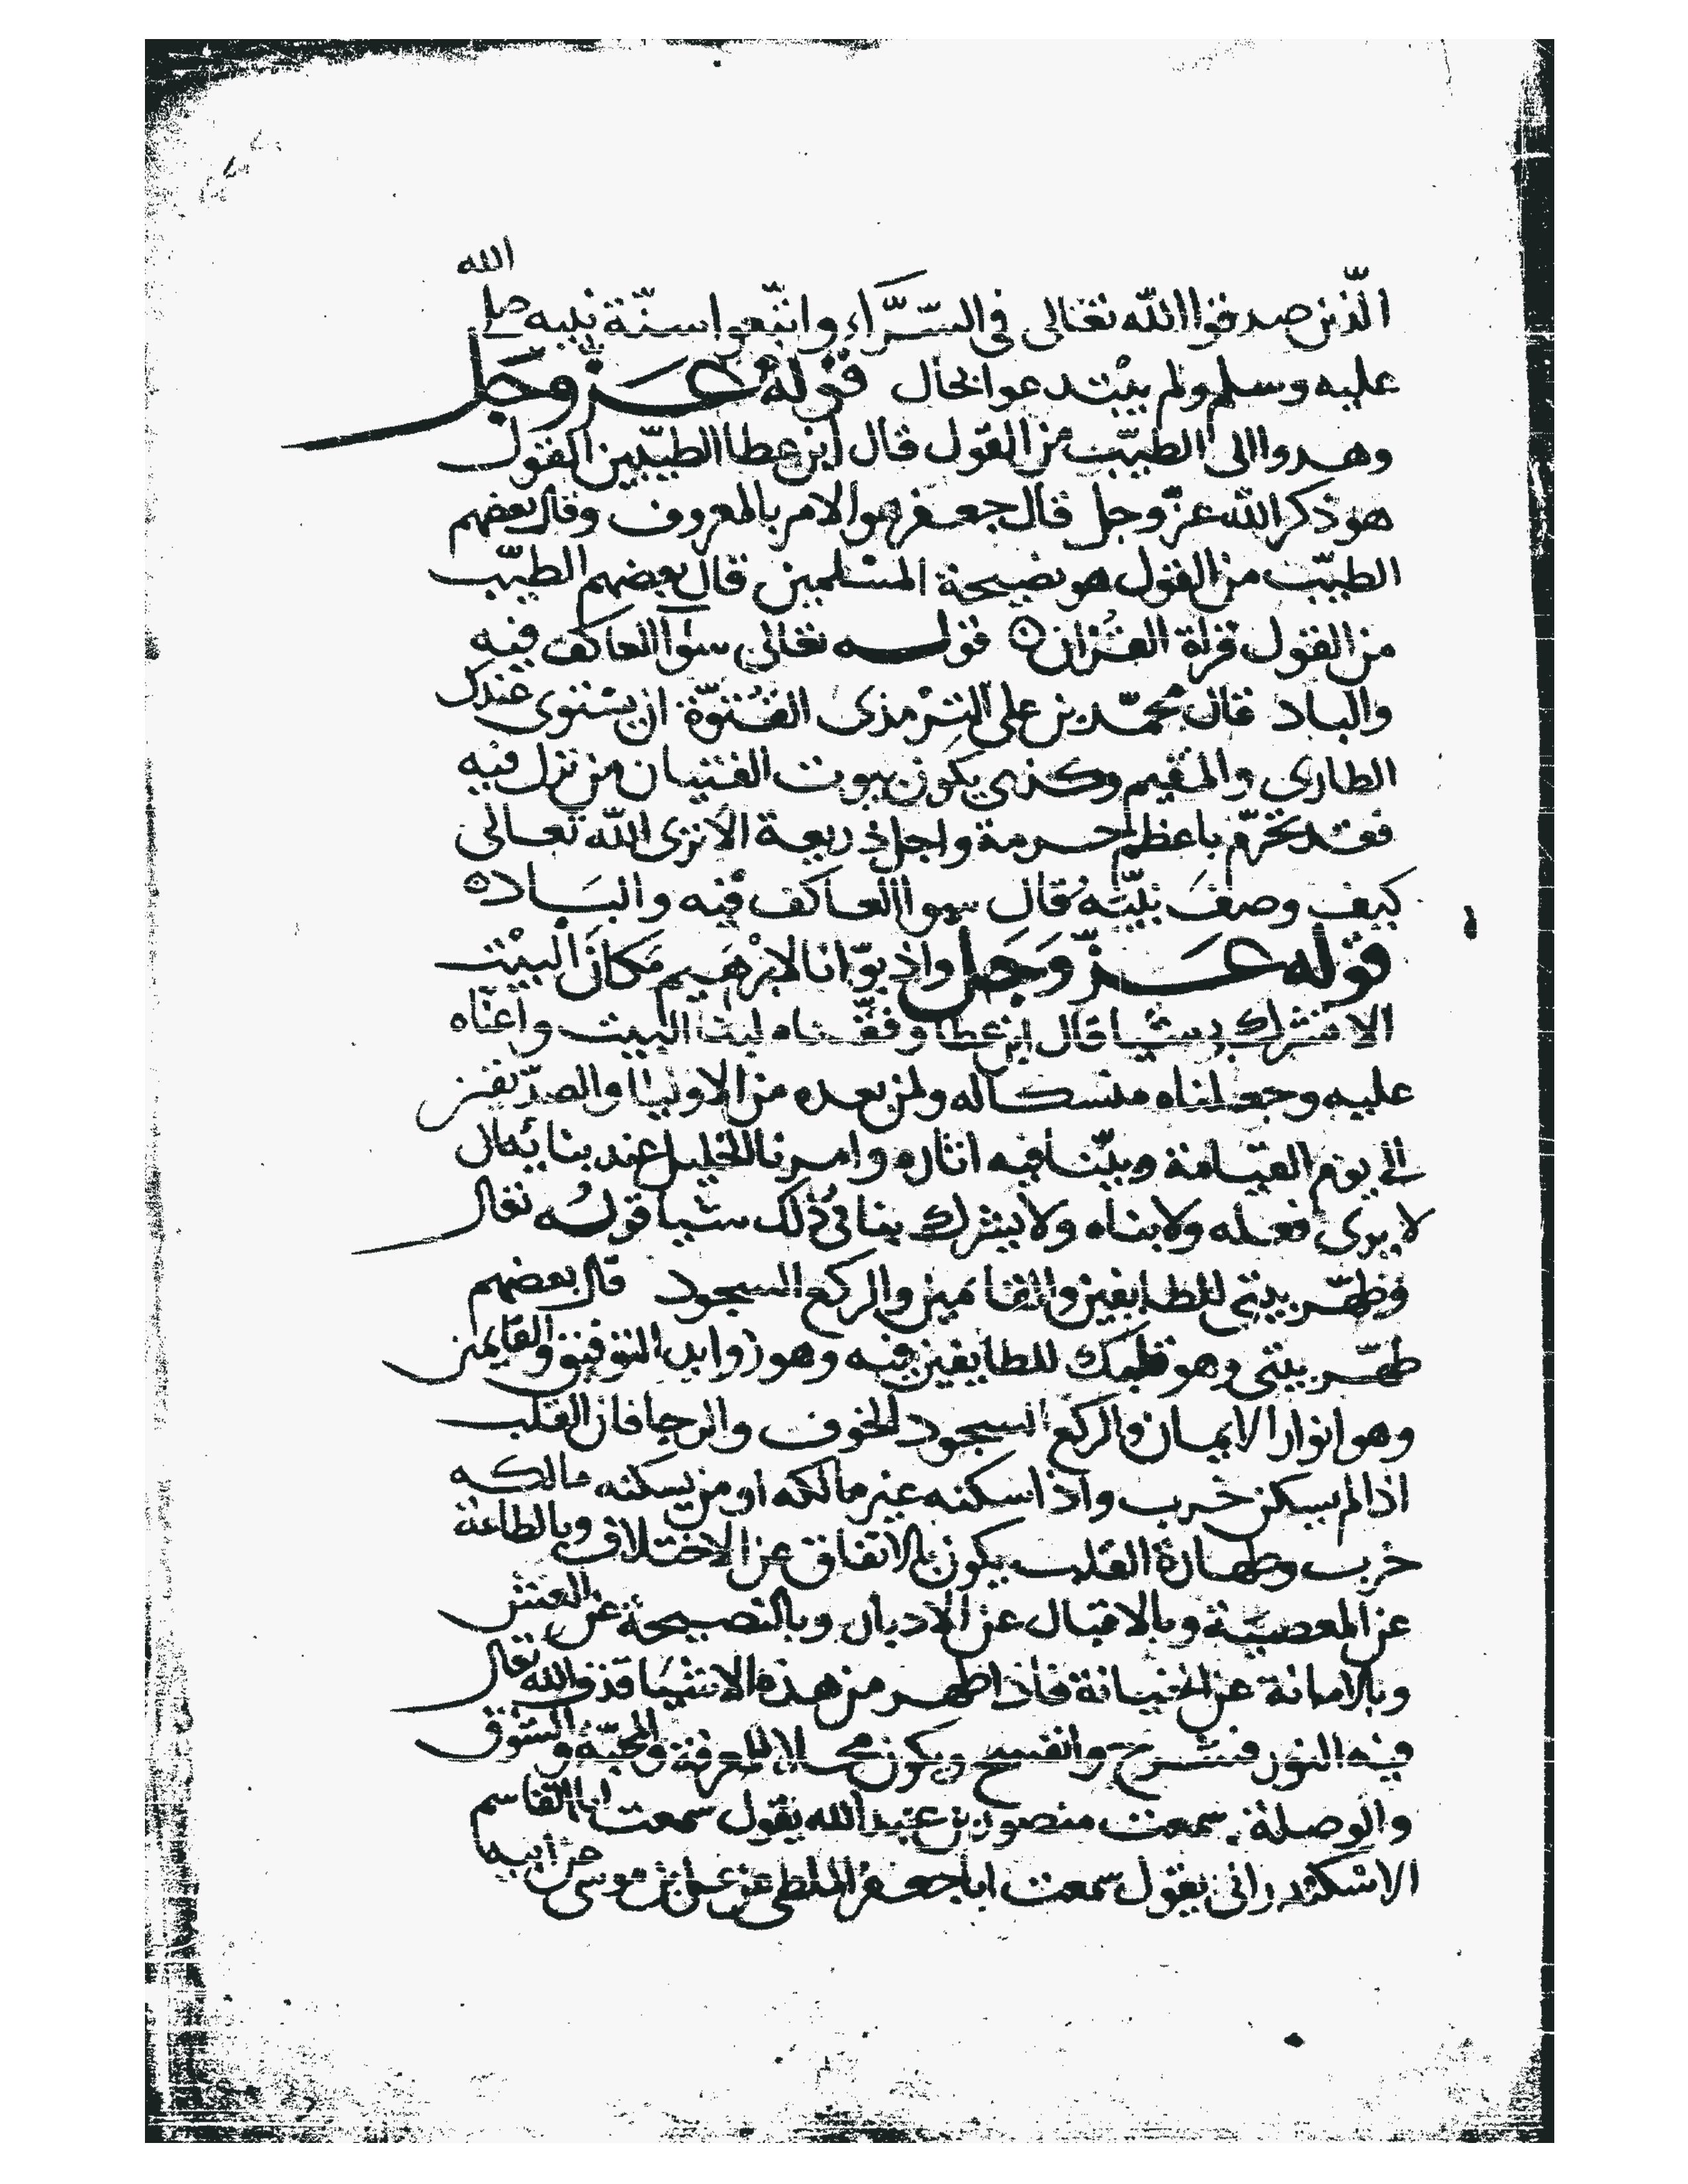 الّذين صدقوا الله تعالى في السّرّاء واتبّعوا سنّة نبيه صلى الله
عليه وسلم ولم يبتدعوا بحال قوله عز وجل
وهدوا الى الطيّب من القول قال ابن عطا الطيّب من القول
هو ذكر الله عزّ وجل قال جعفر هو الامر بالمعروف وقال بعضهم
الطيّب من القول هو نصيحة المسلمين قال بعضهم الطيّب
من القول قراة القران ۞ قوله تعالى سوآ العاكف فيه
والباد قال محمّد بن على التّرمذى الفتوّة ان يستوى عندك
الطارى والمقيم وكذى يكون بيوت الفتيان من نزل فيه
فقد تحرّم باعظم حرمة واجل ذريعة الا ترى الله تعالى
كيف وصف بيته قال سوا العاكف فيه والباد ۞
قوله عزّ وجل واذ بوّانا لابرهيم مكان البيت
الا تشرك بى شيا قال ابن عطا وفقناه لبنا البيت واعناه
عليه وجعلناه منسكا له ولمن بعده من الاوليا والصدّيقين
الى يوم القيامة وبيّنا فيه اثاره وامرنا الخليل عند بنايه ان
لا يرى فعله ولا بناه ولا يشرك بنا في ذلك شيا قوله تعالى
وطهّر بيتى للطايفين والقايمين والركع السجود قال بعضهم
طهّر بيتى وهو قلبك للطايفين فيه وهو زوايد التوفيق والقايمين
وهو انوار الايمان والركع السجود الخوف والرجا فان القلب
اذا لم يسكن خرب واذا سكنه غير مالكه او من يسكنه مالكه
خرب وطهارة القلب يكون بالاتفاق عن الاختلاف وبالطاعة
عن المعصية وبالاقبال عن الادبار وبالنصيحة عن الغش
وبالامانة عن الخيانة فاذا طهر من هذه الاشيا قذف الله تعالى
فيه النور فنشرح وانفسح ويكون محلا للمعرفة والمحبّة والشوق
والوصلة سمعت منصور بن عبد الله يقول سمعت ابا القاسم
الاسكندرانى يقول سمعت ابا جعفر الملطى عن على بن موسى عن ابيه